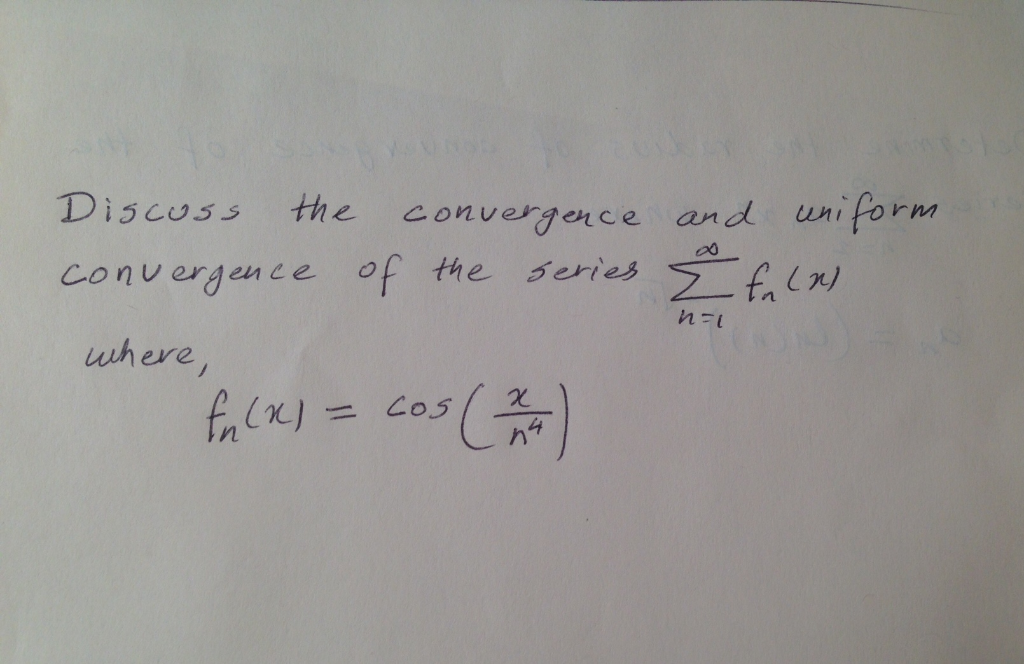 Discuss the convergence and uniform
convergence of the series ∑_{n=1}^{∞} fₙ(x)
where,
fₙ(x) = cos(x/n⁴)